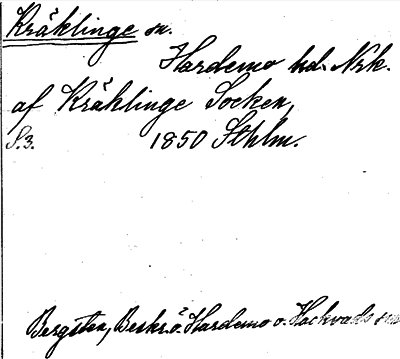 Kräklinge sn.
Hardemo hd. Nrk.
af Kräklinge Socken,
S.3. 1850 Sthlm.
Bergsten, Beskr. ö. Hardemo o. Hackvads sn